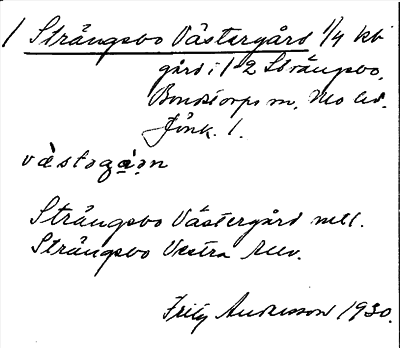 1 Strängsbo Västergård 1/4 kb
gård i 1-2 Strängsbo,
Bondstorps sn, Mo hd.
Jönk. l.
Strängsbo Västergård mtl.
Strängsbo Vestra
Fritz Andersson 1930.